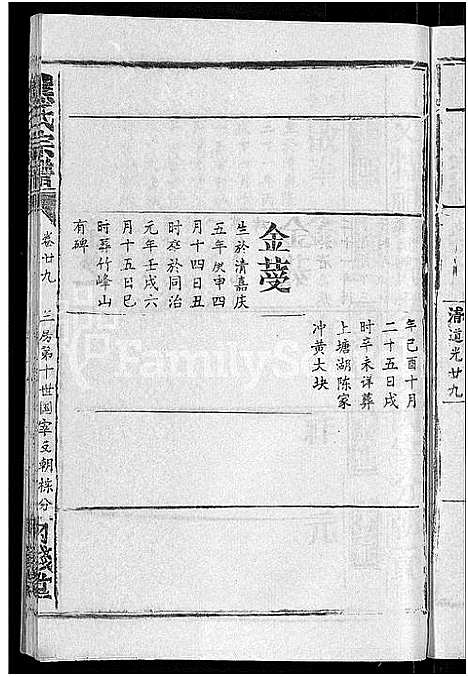 清道光廿九
年己酉十月
二十五日戌
時卒未详葬
上塘湖陈家
冲黄大块
金蓃
生於清嘉庆
五年庚申四
月十四日丑
时卒於同治
元年壬戌六
月十五日巳
时葬竹峰山
有碑
氏宗譜
卷廿九
三房第十世国宰支朝栋分